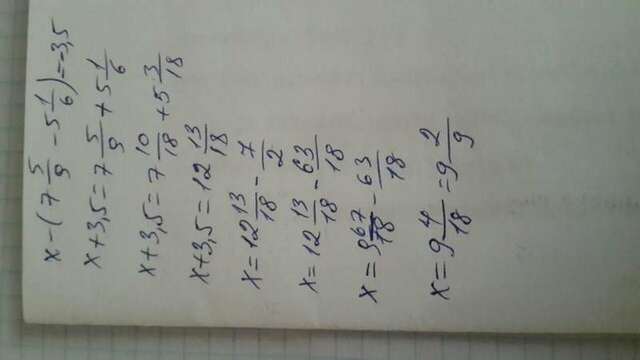 x-(7 5/9 -5 1/6)=-3,5
x+3,5=7 5/9 +5 1/6
x+3,5=7 10/18 +5 3/18
x+3,5=12 13/18
x=12 13/18 - 7/2
x=12 13/18 - 63/18
x=9 67/18 - 63/18
x=9 4/18 =9 2/9